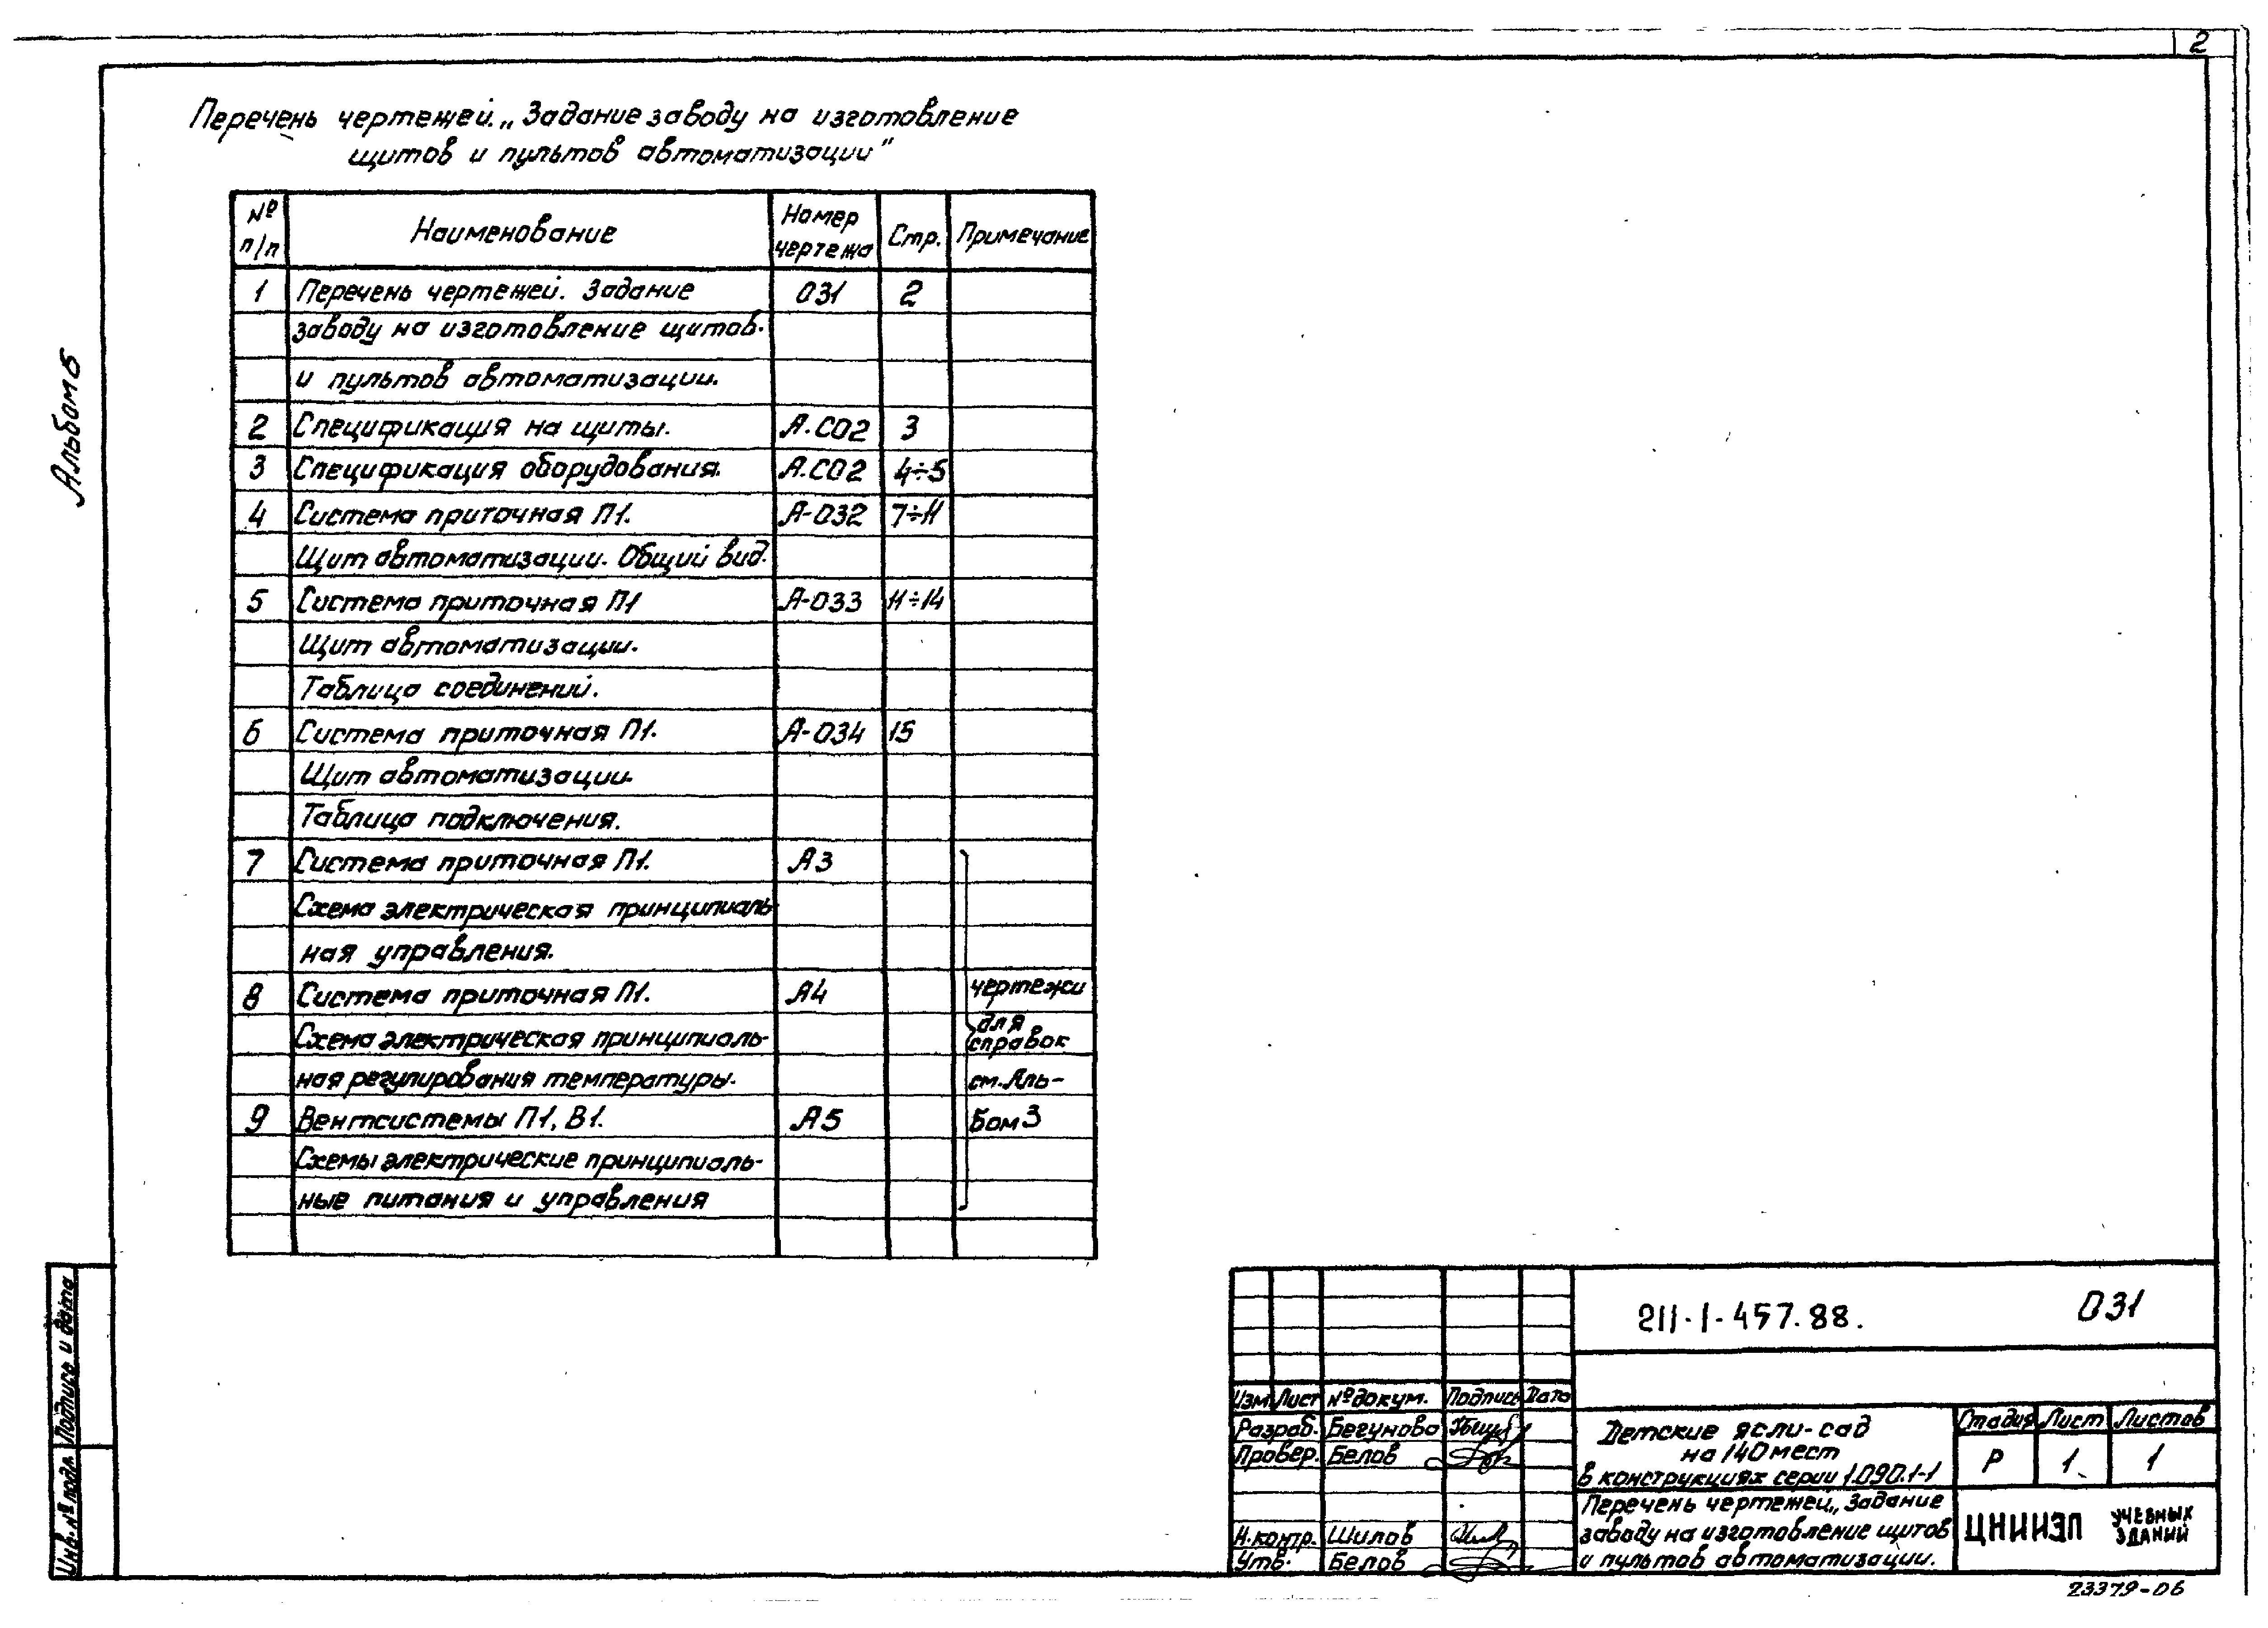 2
Перечень чертежей. „Задание заводу на изготовление
щитов и пультов автоматизации"
Альбом 6
№ п/п Наименование Номер чертежа Стр. Примечание
1 Перечень чертежей. Задание 031 2
заводу на изготовление щитов
и пультов автоматизации.
2 Спецификация на щиты. А.СО2 3
3 Спецификация оборудования. А.СО2 4÷5
4 Система приточная П1. А-032 7÷11
Щит автоматизации. Общий вид.
5 Система приточная П1 А-033 11÷14
Щит автоматизации.
Таблица соединений.
6 Система приточная П1. А-034 15
Щит автоматизации.
Таблица подключения.
7 Система приточная П1. А3
Схема электрическая принципиаль-
ная управления.
8 Система приточная П1. А4 чертежи
Схема электрическая принципиаль- для справок
ная регулирования температуры. см. Аль-
9 Вентсистемы П1, В1. А5 бом 3
Схемы электрические принципиаль-
ные питания и управления
211-1-457.88. 031
Изм Лист № докум. Подпись Дата
Разраб. Бегунова
Провер. Белов
Н.контр. Шилов
Утв. Белов
Детские ясли-сад
на 140 мест
в конструкциях серии 1.090.1-1
Стадия Лист Листов
Р 1 1
Перечень чертежей „Задание
заводу на изготовление щитов
и пультов автоматизации.
ЦНИИЭП УЧЕБНЫХ ЗДАНИЙ
23379-06
Подпись и дата
Инв. № подл.